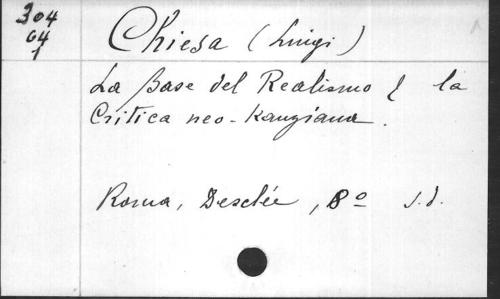 304
64
1
Chiesa (Luigi)
La Base del Realismo & la
Critica neo-Kangiana.
Roma, Desclée, 8º s.d.